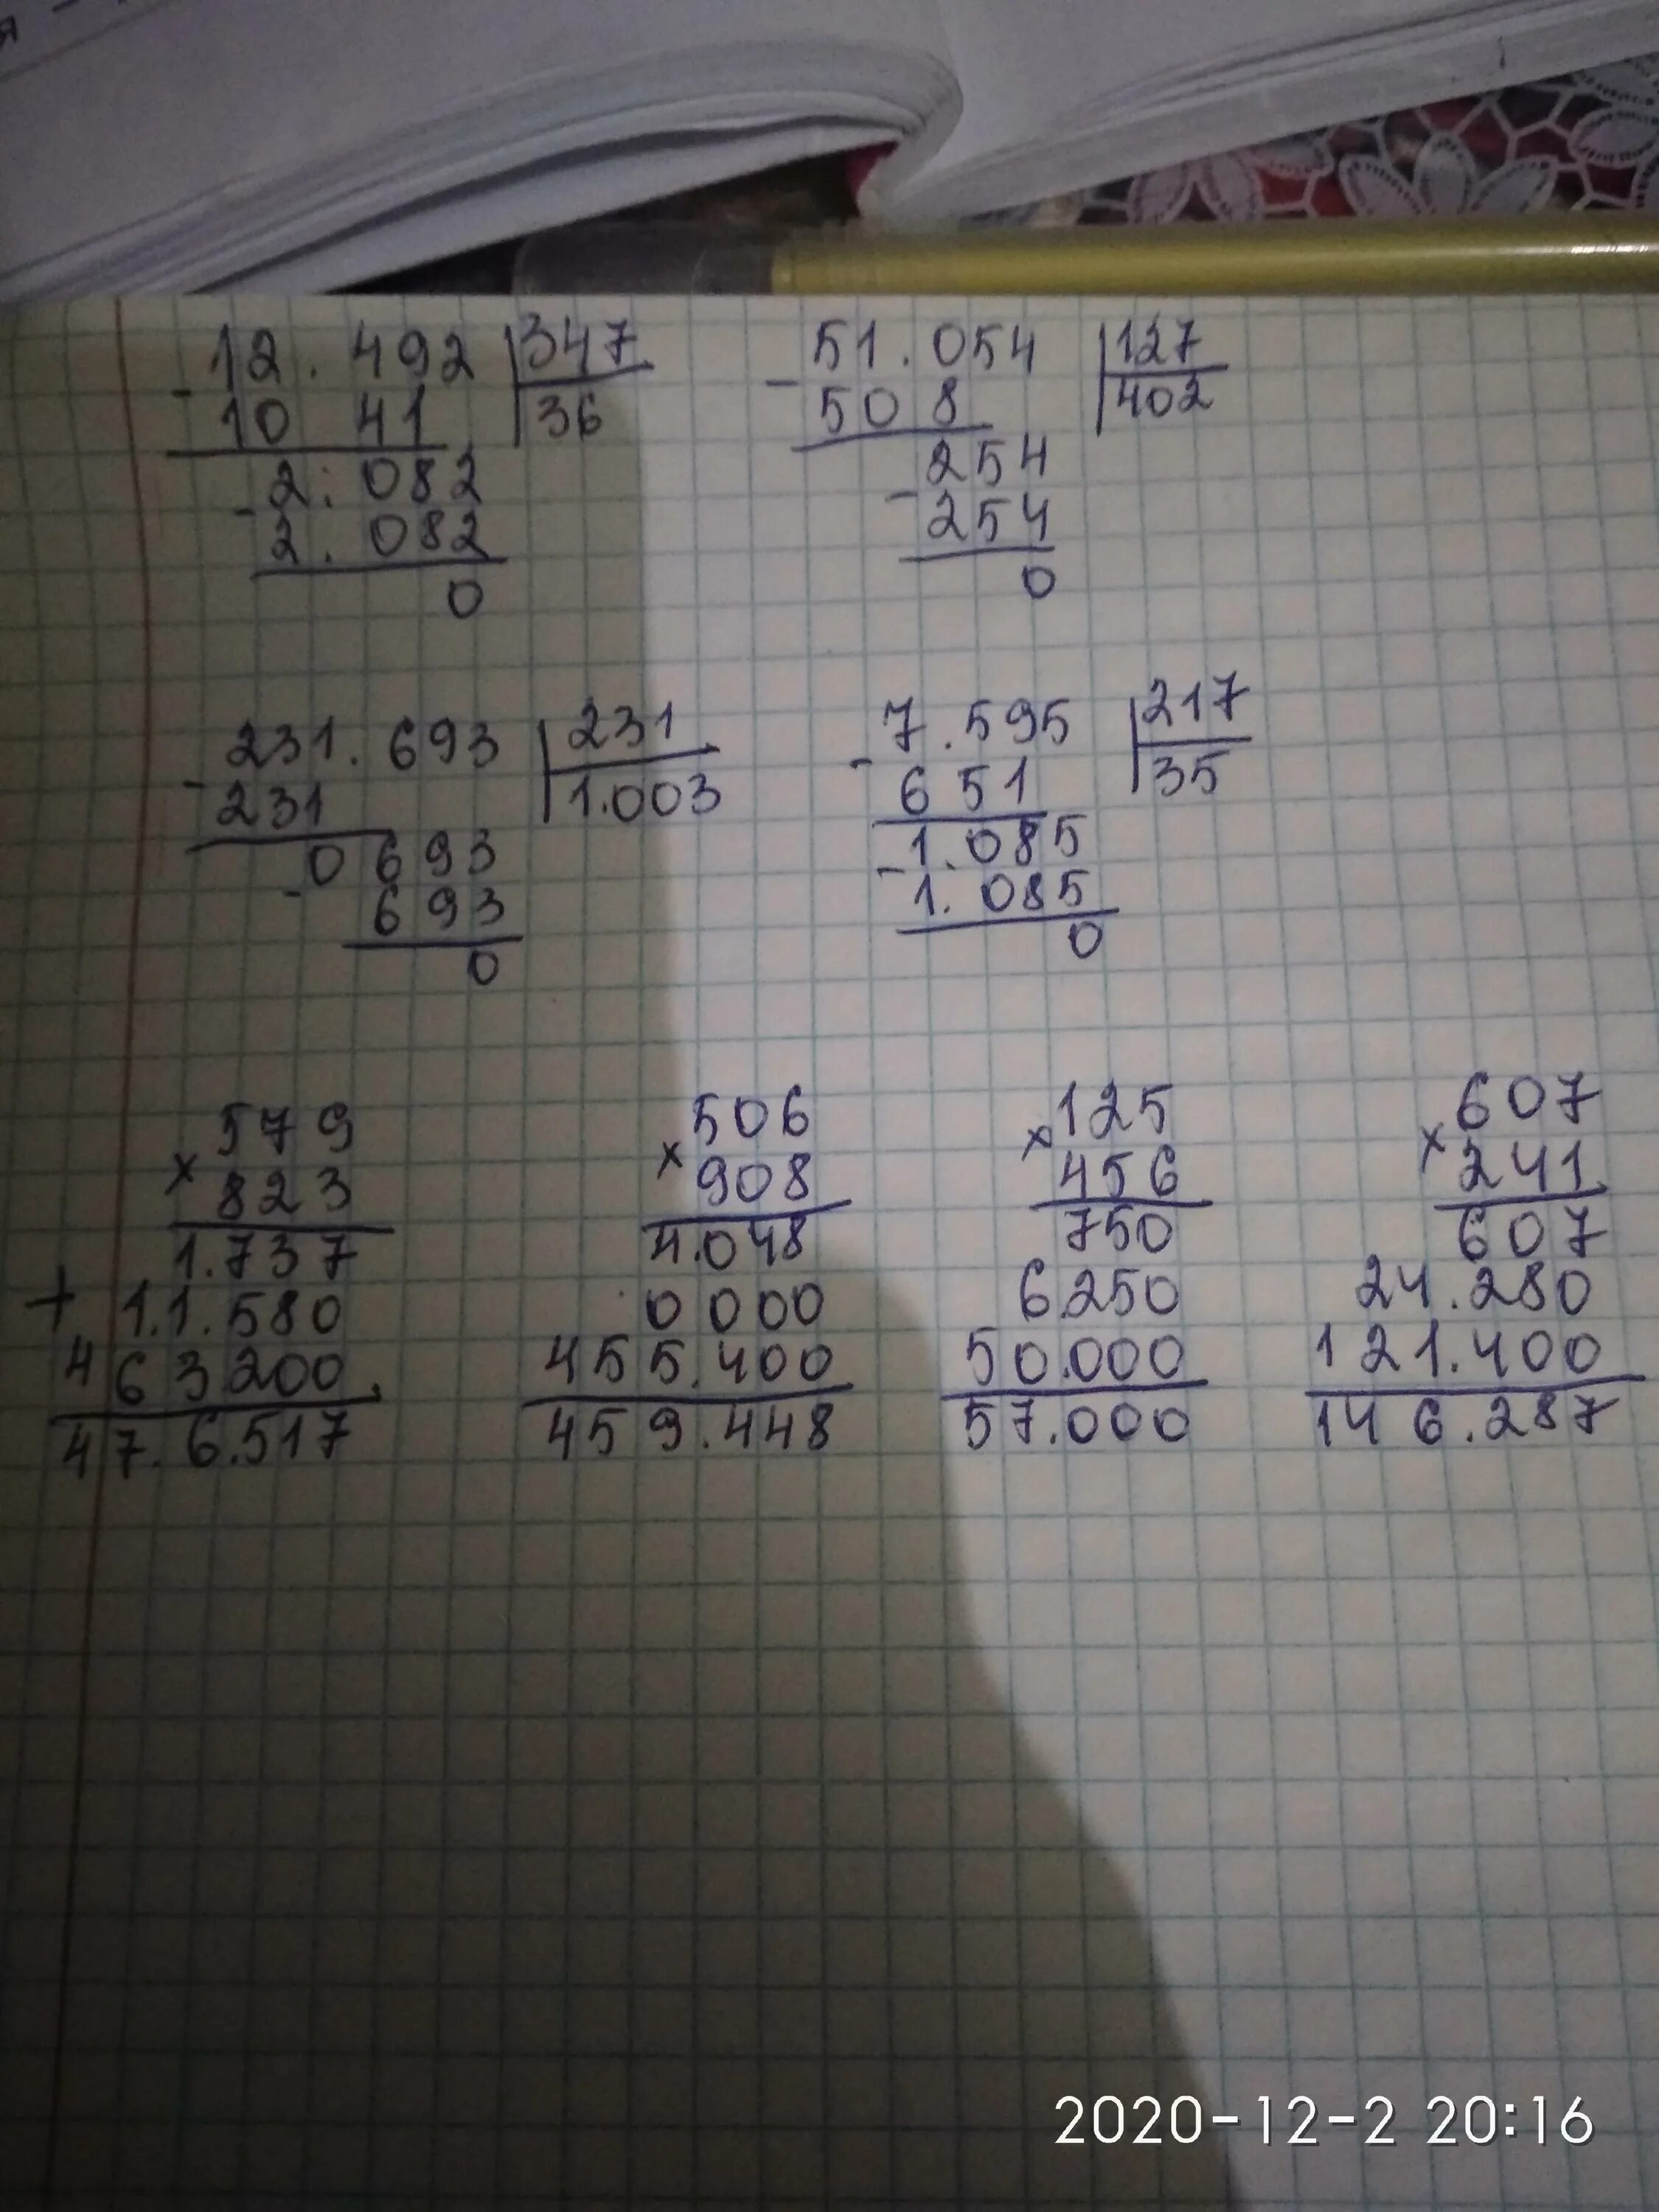 12.492 347
- 10 41 36
2.082
- 2.082
0
51.054 127
- 508 402
254
- 254
0
231.693 231
- 231 1.003
0693
- 693
0
7.595 217
- 651 35
1.085
- 1.085
0
579
× 823
1.737
+ 1.1.580
463200.
47.6.517
506
× 908
4.048
0000
455.400
459.448
125
× 456
750
6.250
50.000
57.000
607
× 241
607
24.280
121.400
146.287
2020-12-2 20:16